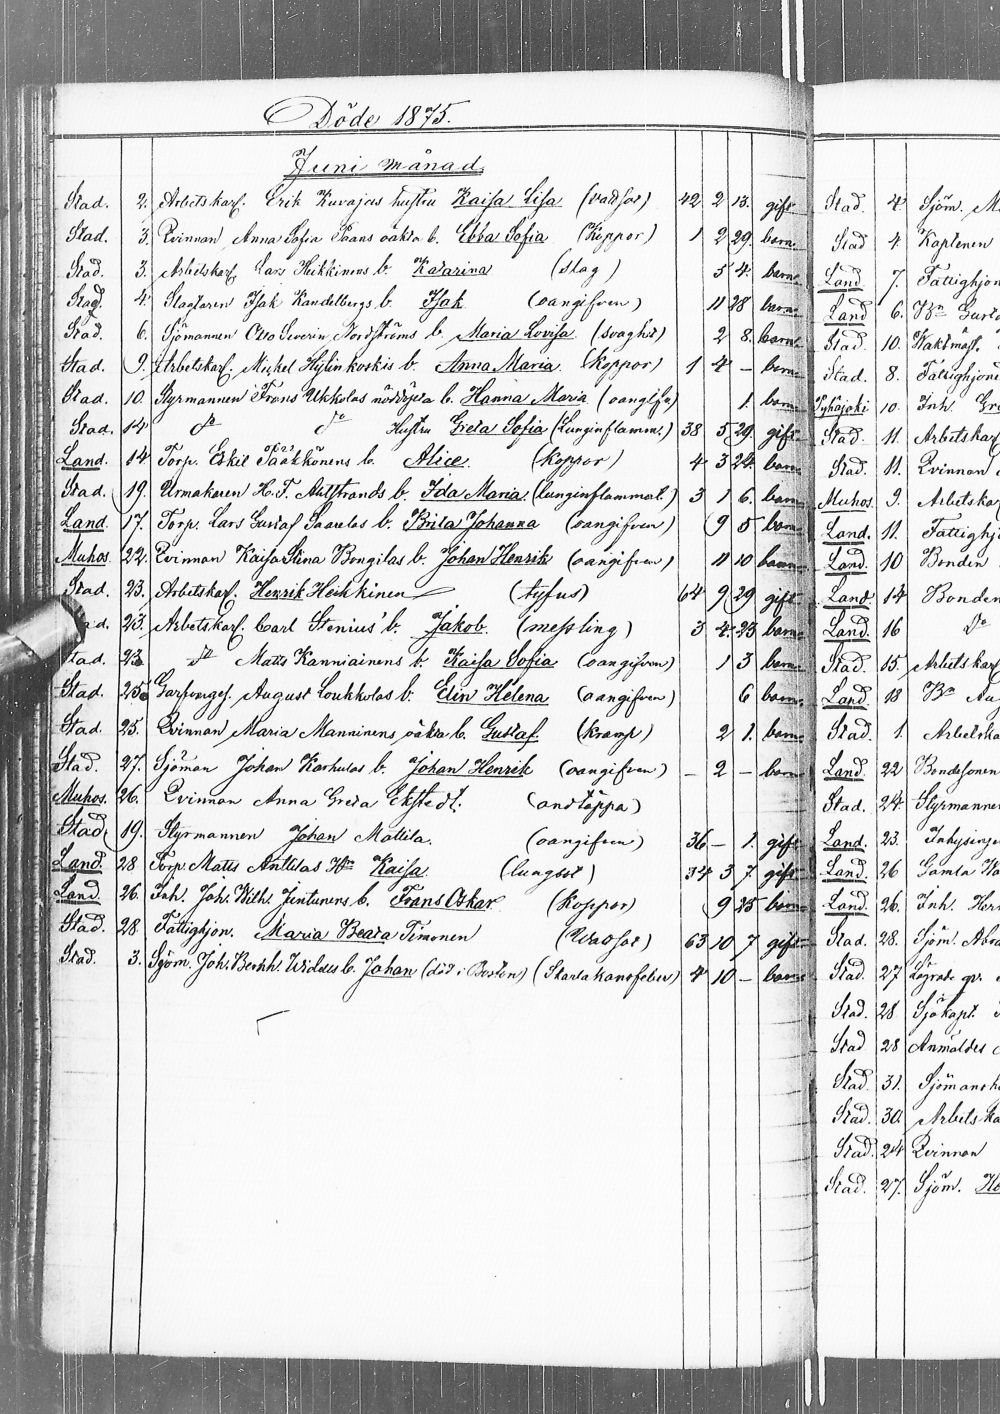 Döde 1875.
Juni månad.
Stad. 2. Arbetskarl. Erik Kuvajas hustru Kaisa Lisa 42 2 13. gift
Stad. 3. Qvinnan Anna Sofia Paans oäkta b. Ebba Sofia (Koppor) 1 2 29. barn.
Stad. 3. Arbetskarl Lars Heikkinens b. Katarina (slag) 5 4. barn.
Stad. 4. Slagtaren Isak Kandelbergs b. Isak (oangifven) 11 28 barn.
Stad. 6. Sjömannen Otto Severin Nordströms b. Maria Lovisa (svaghet) 2 8. barn.
Stad. 9. Arbetskarl. Mickel Hylinkoskis b. Anna Maria. (koppor) 1 4 – barn.
Stad. 10. Styrmannen Frans Ukkolas nöddöpta b. Hanna Maria 1. barn.
Stad. 14 do do Hustru Greta Sofia (Lunginflamm.) 38 5 29. gift
Land. 14 Torp. Eskil Pääkkönens b. Alice. (koppor) 4 3 24. barn.
Stad. 19. Urmakaren H. F. b. Ida Maria. (lunginflammat.) 3 1 6. barn.
Land. 17. Torp. Lars Gustaf Saarelas b. Brita Johanna (oangifven) 9 5 barn.
Muhos. 22. Qvinnan Kaisa Stina Bongilas b. Johan Henrik (oangifven) 11 10 barn.
Stad. 23. Arbetskarl. Henrik Heikkinen (tyfus) 64 9 29 gift
ad. 23. Arbetskarl. Carl Stenius' b. Jakob. (messling) 3 4 25 barn.
tad. 23. do Matts Kanniainens b. Kaisa Sofia (oangifven) 1 3 barn.
Stad. 25. Garfvargес. August Loukkolas b. Elin Helena (oangifven) 6 barn.
Stad. 25. Qvinnan Maria Manninens oäkta b. Gustaf. (kramp) 2 1. barn.
Stad. 27. Sjöman Johan Karhulas b. Johan Henrik (oangifven) – 2 – barn
Muhos. 26. Qvinnan Anna Greta Ekstedt. (andtäppa)
Stad 19. Styrmannen Johan Mattila. (oangifven) 36 – 1. gift
Land. 28 Torp. Matts Anttilas Hru Kaisa. (lungsot) 34 3 7. gift
Land. 26. Inh. Joh. Wilh. Junturens b. Frans Oskar (koppor) 9 25 barn
Stad. 28. Fattighjon. Maria Beata Timonen 63 10 7 gift
Stad. 3. Sjöm. Joh. Bernh. b. Johan (död i Boston) (Skarlakansfeber) 4 10 – barn
Stad. 4. Sjöm. M
Stad 4. Kaptenen
Land. 7. Fattighjon
Land 6. Bn Gust
Stad. 10. Waktmäst.
Stad. 8. Fattighjon
Pyhäjoki 10. Inh. Gre
Stad. 11. Arbetskarl
Stad. 11. Qvinnan
Muhos. 9. Arbetska
Land. 11. Fattighj
Land. 10 Bonden
Land. 14 Bonden
Land. 16 do
Stad. 15. Arbetskarl
Land. 18 Bn Au
Stad. 1. Arbetska
Land. 22 Bondesonen
Stad. 24. Styrmannen
Land. 23. Inhysinge
Land. 26 Gamla
Land. 26. Inh. Her
Stad. 28. Sjöm. Abra
Stad. 27
Stad. 28 Sjökapt.
Stad 28 Anmäldes
Stad. 31. Sjömansh
Stad. 30. Arbetska
Stad. 24 Qvinnan
Stad. 27. Sjöm. He